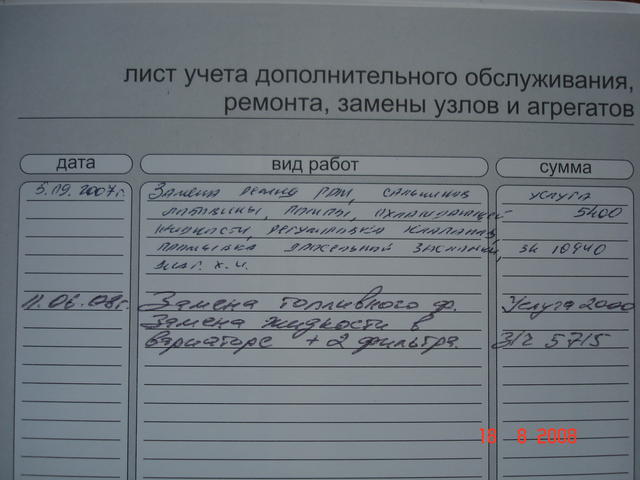 лист учета дополнительного обслуживания,
ремонта, замены узлов и агрегатов
дата вид работ сумма
5.09.2007г. Замена ремня ГРМ, сальников услуга
помпы, охлаждающей 5400
жидкости, регулировка клапанов,
промывка дроссельной заслонки, зч 10940
диаг. х.ч.
11.06.08г. Замена топливного ф. Услуга 2000
Замена жидкости в
вариаторе + 2 фильтра. З/ч 5715
18 8 2008